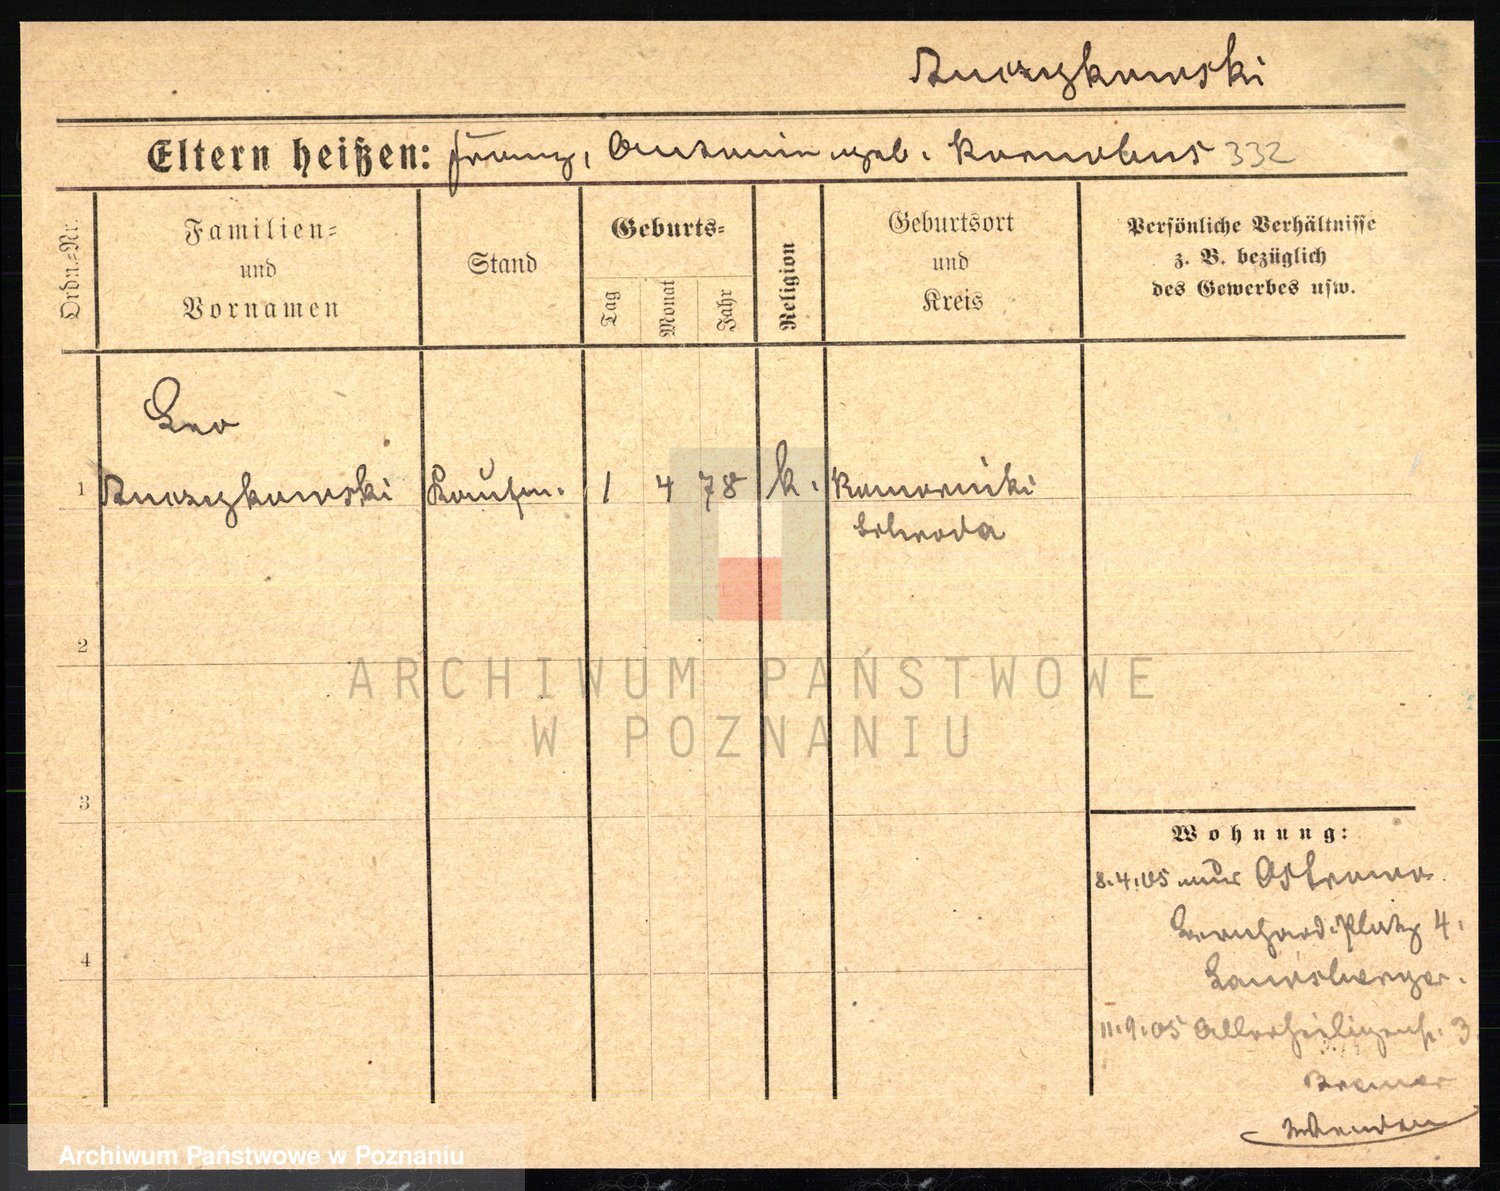 Eltern heißen: Franz, Antonie geb. 332
Ordn.=Nr.
Familien=
und
Vornamen
Stand
Geburts=
Tag
Monat
Jahr
Religion
Geburtsort
und
Kreis
Persönliche Verhältnisse
z. B. bezüglich
des Gewerbes usw.
Leo
1 Kaufm. 1 4 78 k. Komorniki
Schroda
2
ARCHIWUM PAŃSTWOWE
W POZNANIU
3
Wohnung:
8.4.05 aus Ostrowo
Bernhard.Platz 4.
4
11.9.05 Allerheiligenstr. 3
Archiwum Państwowe w Poznaniu